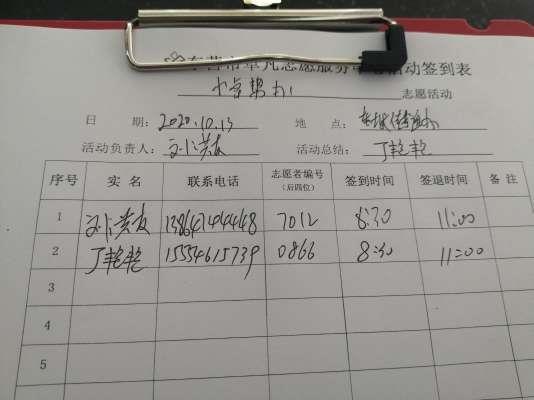 东营市草凡志愿服务中心活动签到表
志愿活动
日 期： 2020.10.13 地 点：
活动负责人： 活动总结： 丁艳艳
序号 实 名 联系电话 志愿者编号 签到时间 签退时间 备 注
（后四位）
1 13864744448 7012 8:30 11:00
2 丁艳艳 15554615739 0866 8:30 11:00
3
4
5